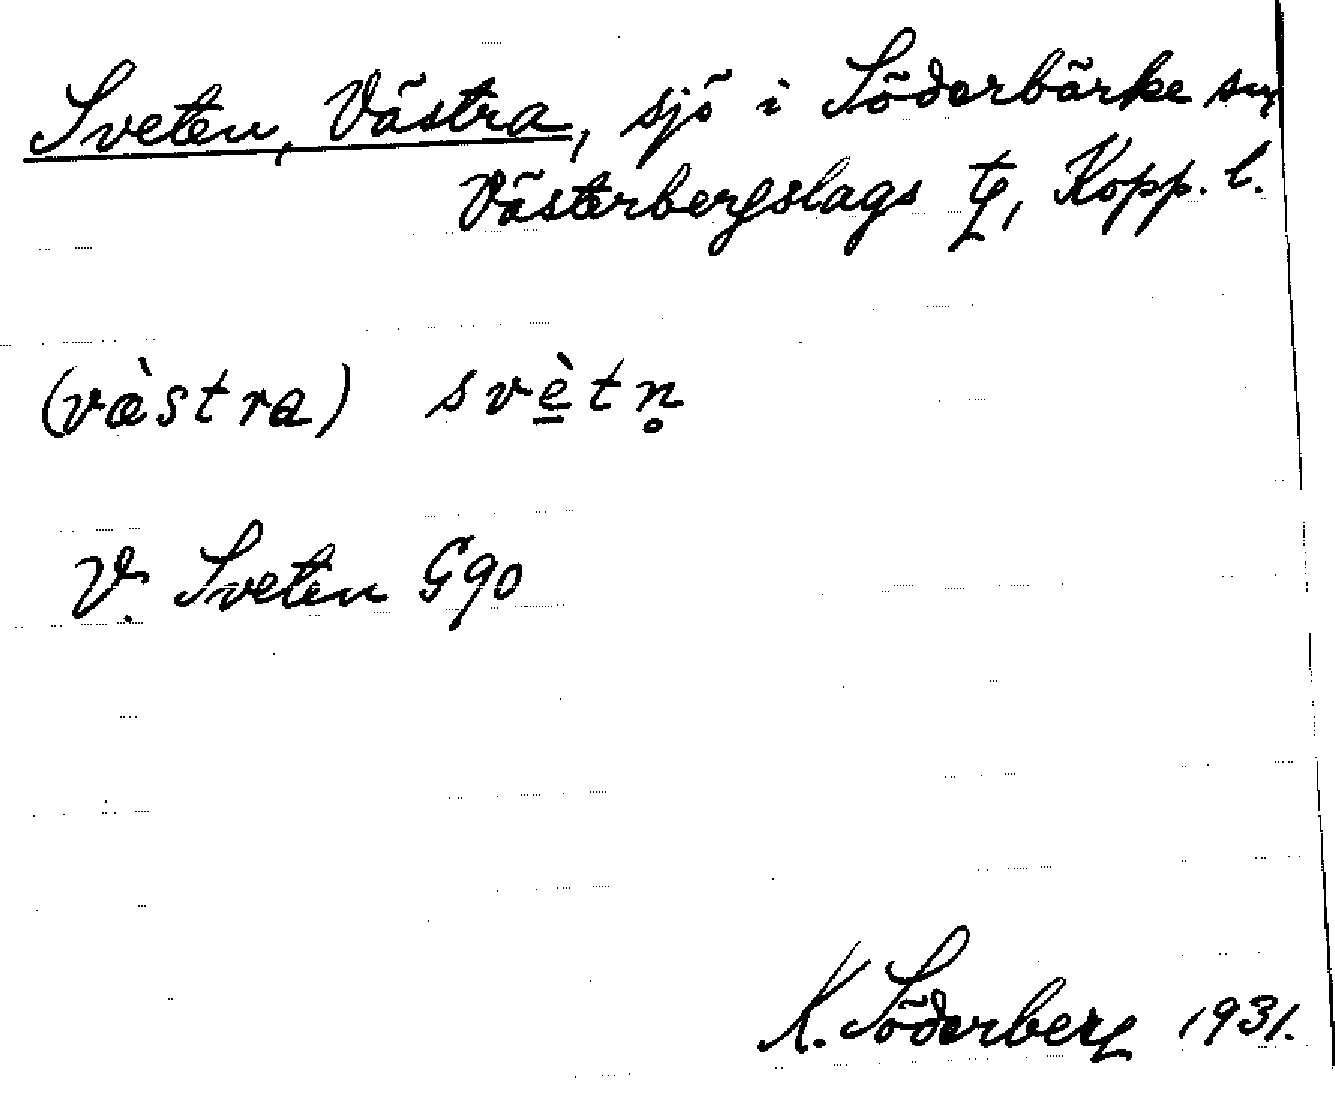 Sveten, Västra, sjö i Söderbärke sn,
Västerbergslags tg, Kopp. l.
(væ̀stra) svè̲tn̥
V. Sveten G90
K. Söderberg 1931.